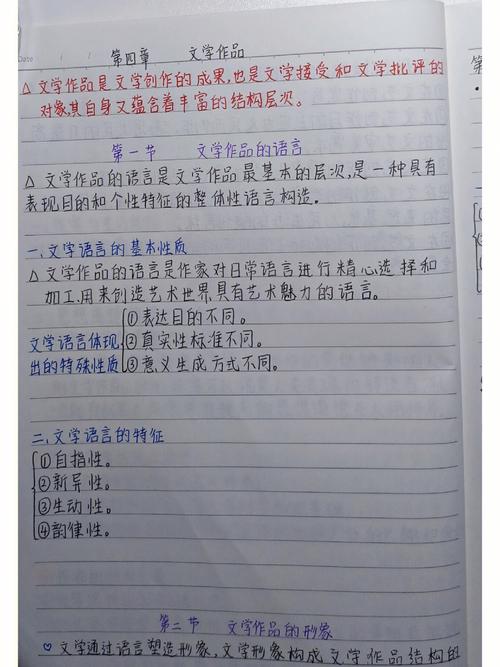 Date
第四章 文学作品
△ 文学作品是文学创作的成果,也是文学接受和文学批评的
对象其自身又蕴含着丰富的结构层次。
第一节 文学作品的语言
△ 文学作品的语言是文学作品最基本的层次,是一种具有
表现目的和个性特征的整体性语言构造。
一、文学语言的基本性质
△ 文学作品的语言是作家对日常语言进行精心选择和
加工,用来创造艺术世界,具有艺术魅力的语言。
①表达目的不同。
文学语言体现 ②真实性标准不同。
出的特殊性质 ③意义生成方式不同。
二、文学语言的特征
①自指性。
②新异性。
③生动性。
④韵律性。
第二节 文学作品的形象
♡ 文学通过语言塑造形象,文学形象构成文学作品结构的